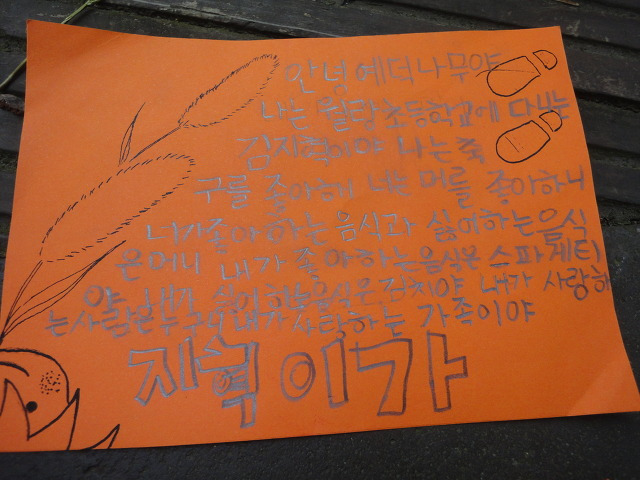 안녕 예덕나무야
나는 월랑초등학교에 다니는
김지혁이야 나는 축
구를 좋아해 너는 머를 좋아하니
너가좋아하는음식과 싫어하는음식
은머니 내가 좋아하는음식은 스파게티
야 내가 싫어하는음식은전치야 내가 사랑하
는사람은 내가사랑하는 가족이야
지혁이가